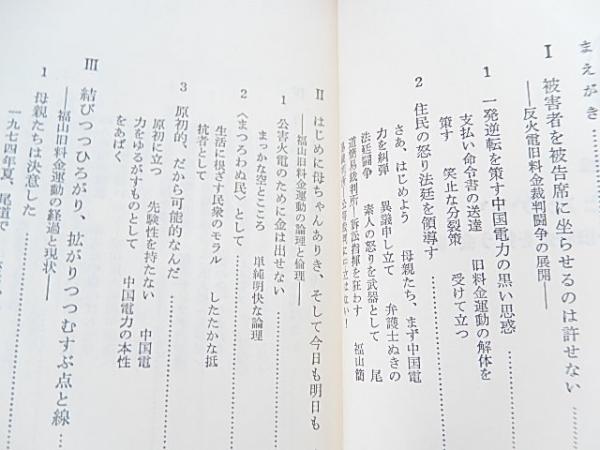 まえがき……
Ⅰ 被害者を被告席に坐らせるのは許せない
——反火電旧料金裁判闘争の展開——
1 一発逆転を策す中国電力の黒い思惑……
支払い命令書の送達 旧料金運動の解体を
策す 笑止な分裂策 受けて立つ
2 住民の怒り法廷を領導す……
さあ、はじめよう 母親たち、まず中国電
力を糾弾 異議申し立て 弁護士ぬきの
法廷闘争 素人の怒りを武器として 尾
道簡易裁判所——訴訟指揮を狂わす 福山簡
Ⅱ はじめに母ちゃんありき、そして今日も明日も
——福山旧料金運動の論理と倫理——
1 公害火電のために金は出せない……
まっかな空とところ 単純明快な論理
2 〈まつろわぬ民〉として……
生活に根ざす民衆のモラル したたかな抵
抗者として
3 原初的、だから可能的なんだ……
原初に立つ 先験性を持たない 中国電
力をゆるがすものとして 中国電力の本性
をあばく
Ⅲ 結びつつひろがり、拡がりつつむすぶ点と線……
——福山旧料金運動の経過と現状——
1 母親たちは決意した……
一九七四年夏、尾道で